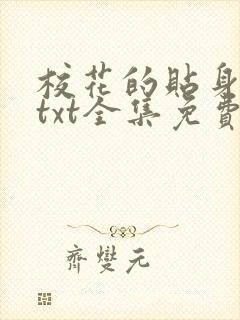 校花的貼身
txt全集免費
齊變元